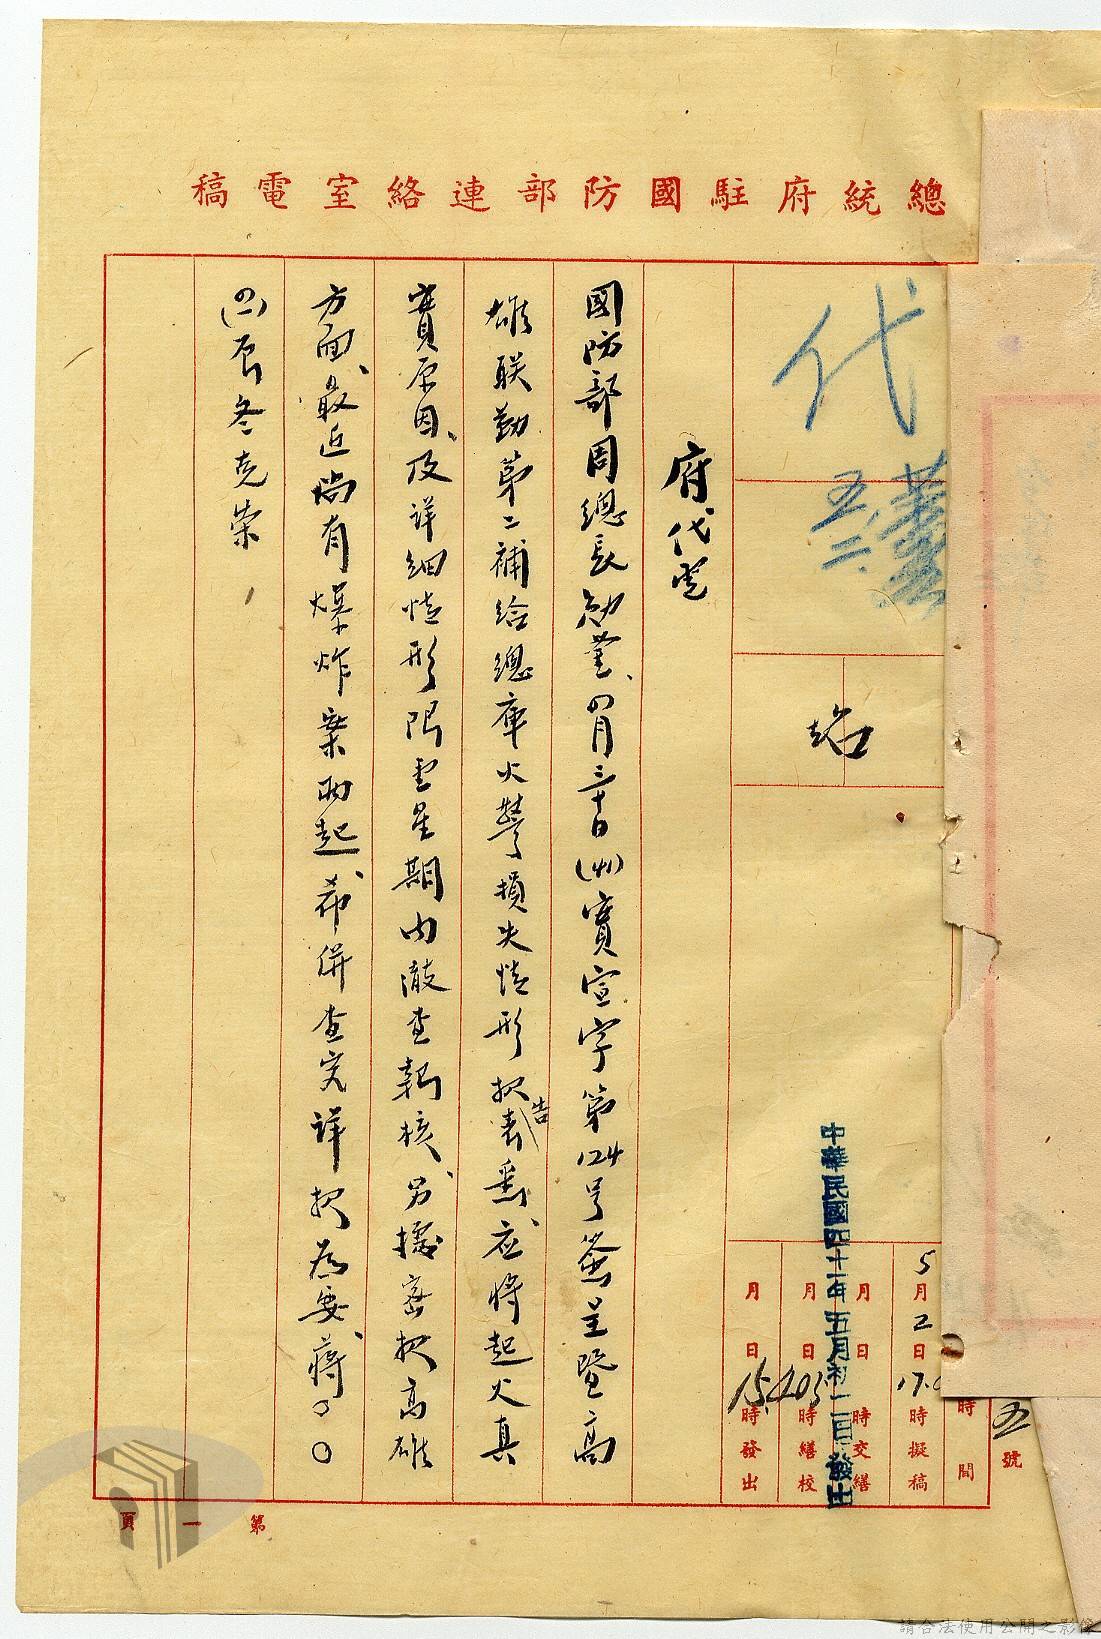 總統府駐國防部連絡室電稿
代
五、二、
府代電
國防部周總長勛鑒、四月三十日(卅)實宣字第124号簽呈暨高
雄联勤第二補給總庫火警損失情形报表告悉、应將起火真
實原因、及詳細情形限壹星期内澈查報核、另據密报高雄
方面、最近尚有爆炸案兩起、希併查究詳报為要、蔣○○
(四一)辰冬克崇
5月2日17.0時擬稿
月日時交繕
月日時繕校
月日15時發出
時間
號
中華民國四十一年五月初二日發出
第一頁
請合法使用公開之影像